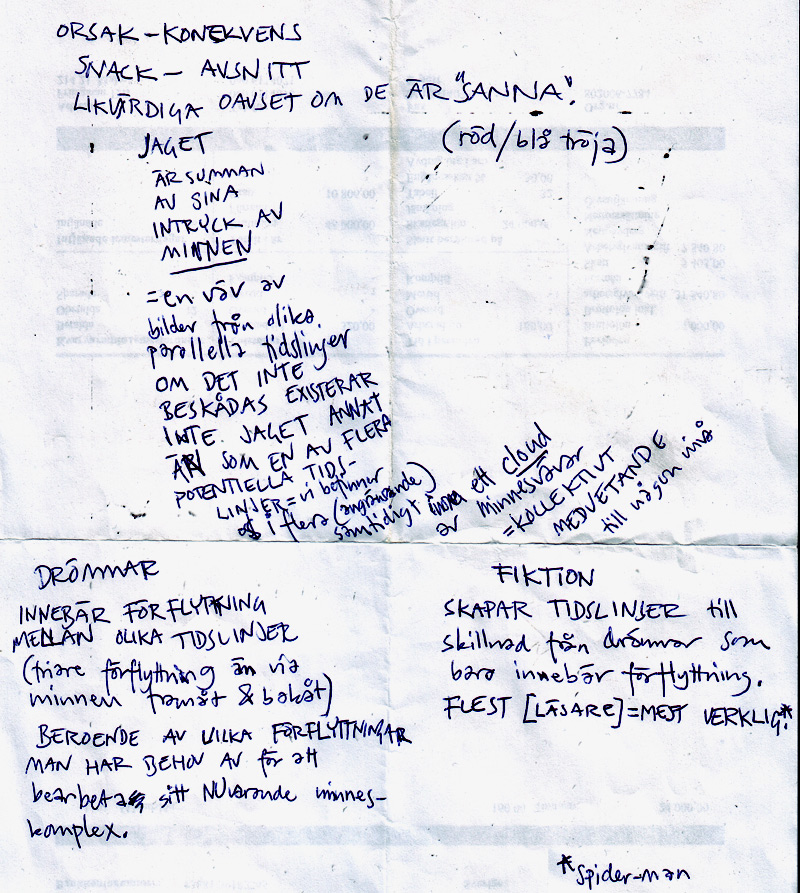 ORSAK – KONEKVENS
SNACK – AVSNITT
LIKVÄRDIGA OAVSET OM DE ÄR "SANNA".
(röd/blå tröja)
JAGET
ÄR SUMMAN
AV SINA
INTRYCK AV
MINNEN
= en väv av
bilder från olika
parallella tidslinjer
OM DET INTE
BESKÅDAS EXISTERAR
INTE JAGET ANNAT
ÄN SOM EN AV FLERA
POTENTIELLA TIDS-
LINJER = vi befinner
oss i flera (angränsande)
samtidigt ett cloud
av minnesvävar
= KOLLEKTIVT
MEDVETANDE
till någon nivå
DRÖMMAR
INNEBÄR FÖRFLYTTNING
MELLAN OLIKA TIDSLINJER
(friare förflyttning än via
minnen framåt & bakåt)
BEROENDE AV VILKA FÖRFLYTTNINGAR
MAN HAR BEHOV AV för att
bearbeta sitt NUvarande minnes-
komplex.
FIKTION
SKAPAR TIDSLINJER till
skillnad från drömmar som
bara innebär förflyttning.
FLEST [LÄSARE] = MEST VERKLIG.*
*Spider-man